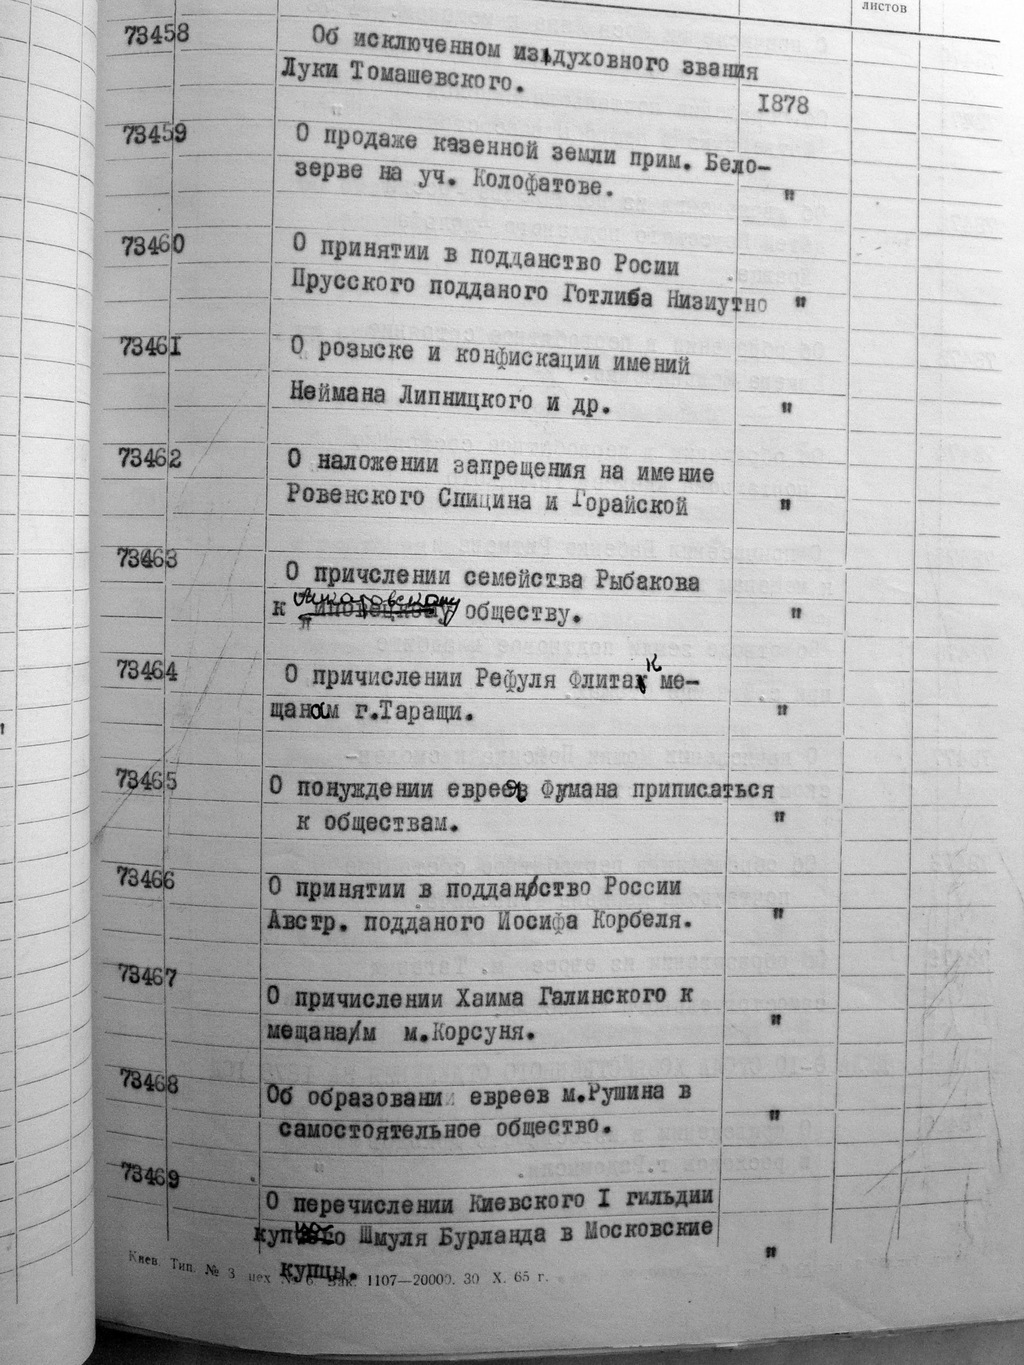 листов
73458 Об исключенном из духовного звания
Луки Томашевского.
1878
73459 О продаже казенной земли прим. Бело-
зерве на уч. Колофатове. "
73460 О принятии в подданство Росии
Прусского подданого Готлиба Низиутно "
73461 О розыске и конфискации имений
Неймана Липницкого и др. "
73462 О наложении запрещения на имение
Ровенского Спицина и Горайской "
73463 О причслении семейства Рыбакова
к обществу. "
73464 О причислении Рефуля Флитак к ме-
щанам г.Таращи. "
73465 О понуждении еврея Фумана приписаться
к обществам. "
73466 О принятии в подданство России
Австр. подданого Иосифа Корбеля. "
73467 О причислении Хаима Галинского к
мещанам м.Корсуня. "
73468 Об образовани евреев м.Рушина в
самостоятельное общество. "
73469 О перечислении Киевского I гильдии
Шмуля Бурланда в Московские
купцы. "
Киев. Тип. № 3 цех № 6. Зак. 1107—20000. 30 X. 65 г.